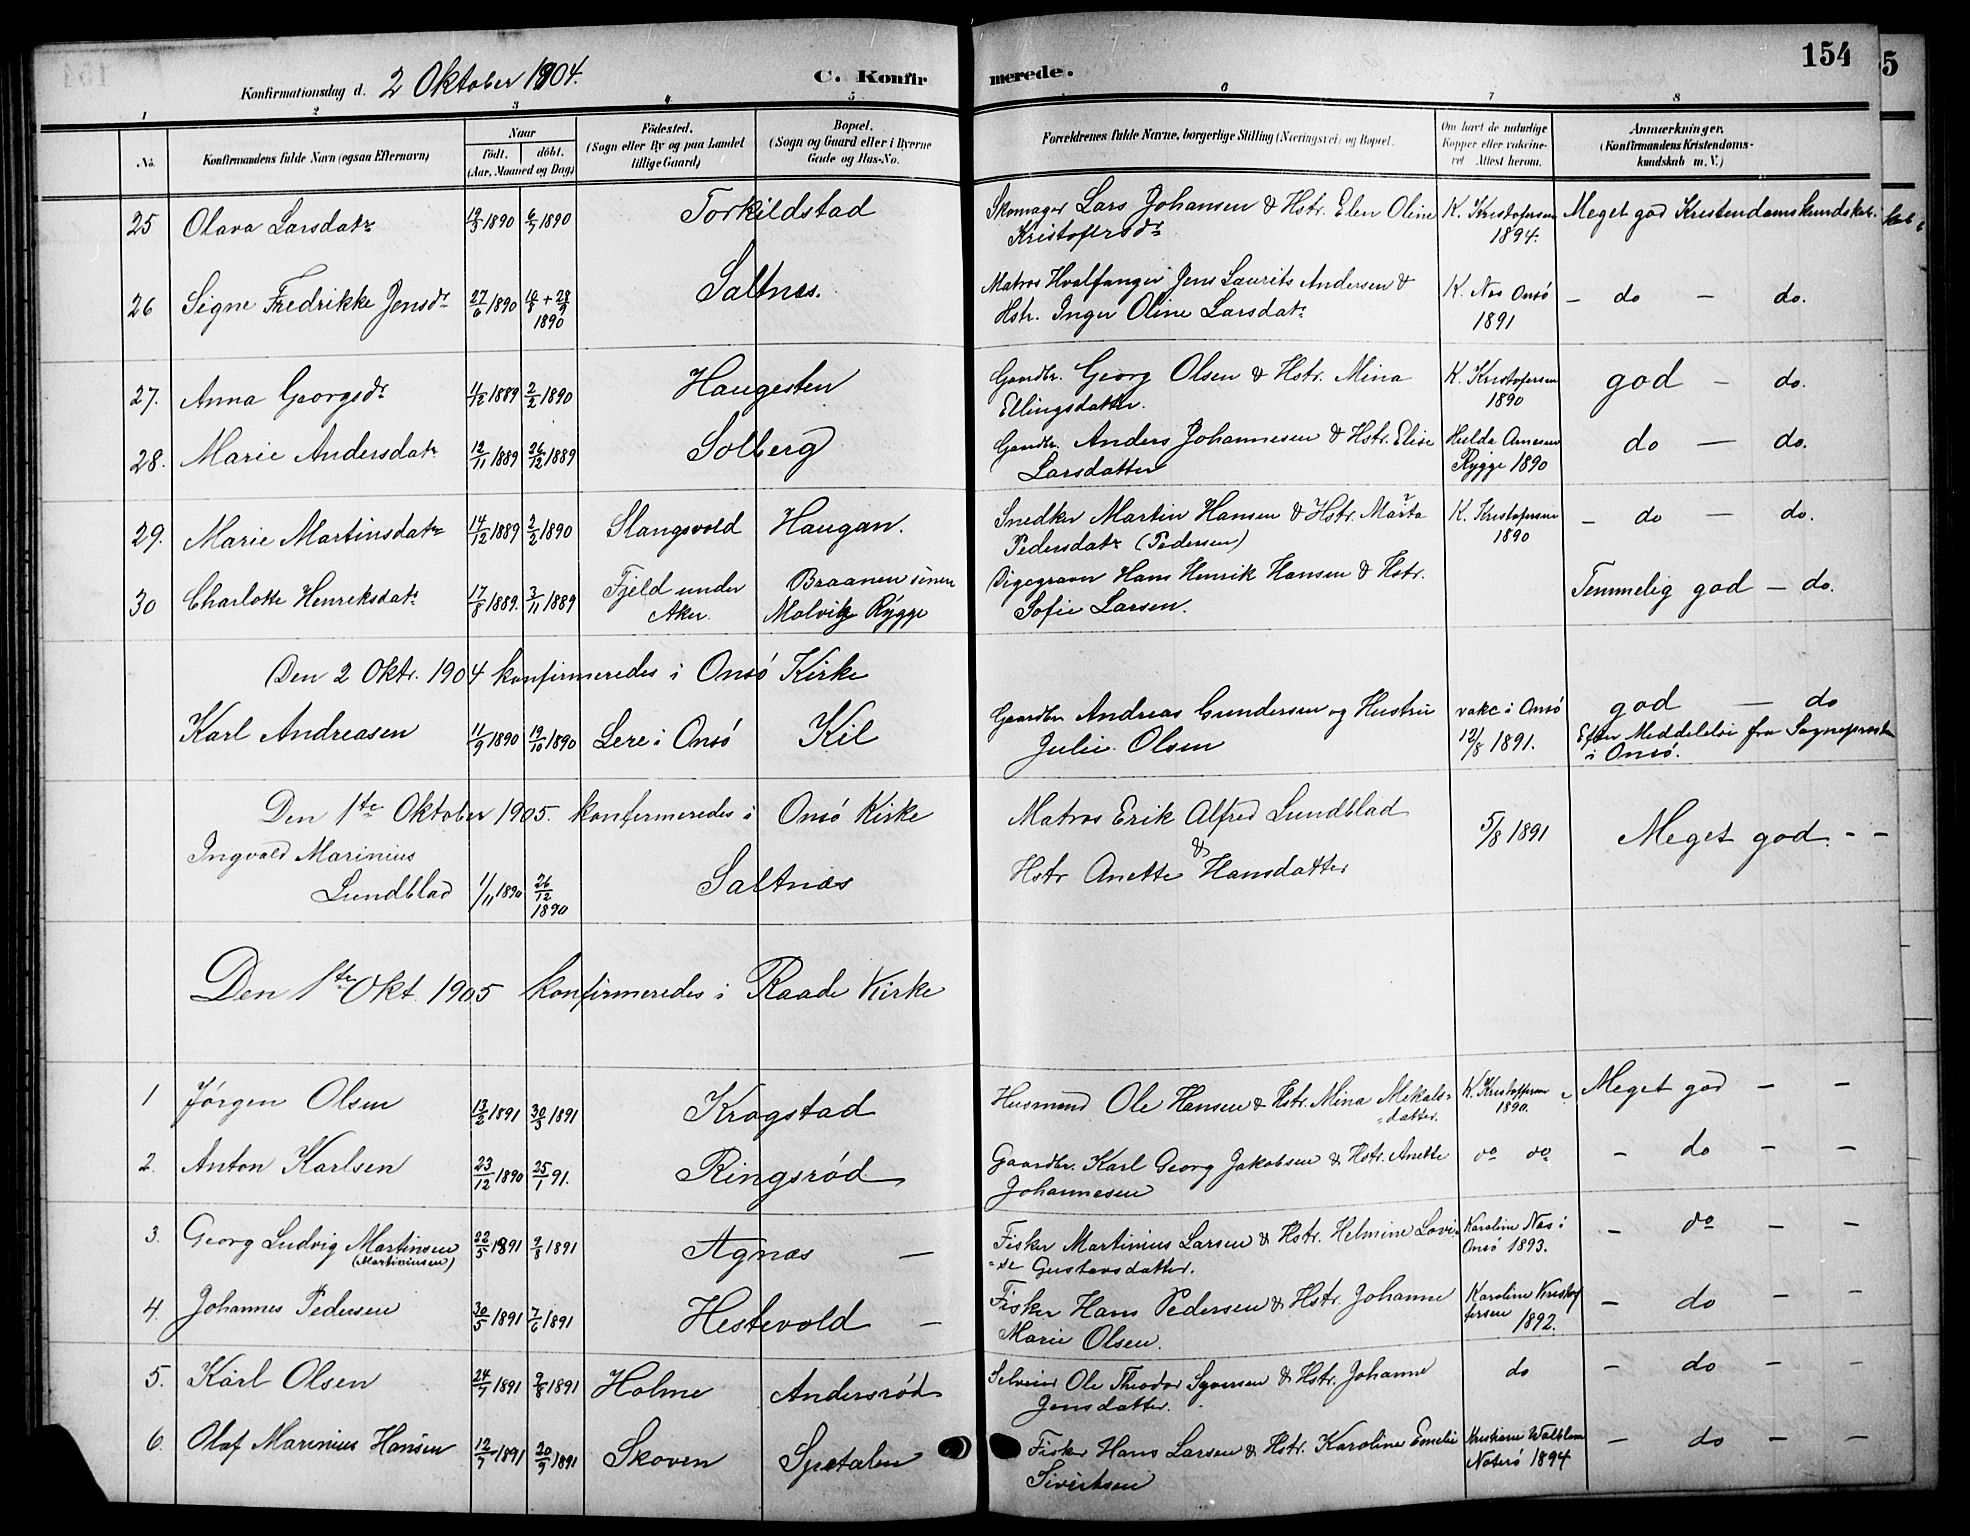 154
Konfirmationsdag d. 2 Oktober 1904.
C. Konfirmerede.
1 2 3 4 5 6 7 8
No.
Konfirmandens fulde Navn (ogsaa Efternavn)
Naar
födt. döbt.
(Aar, Maaned og Dag)
Födested.
(Sogn eller By og paa Landet
tillige Gaard)
Bopæl.
(Sogn og Gaard eller i Byerne
Gade og Hus-No.
Forældrenes fulde Navne, borgerlige Stilling (Næringsvei) og Bopæl.
Om havt de naturlige
Kopper eller vakcine-
ret Attest herom.
Anmærkninger.
(Konfirmandens Kristendoms-
kundskab m. V.)
25 Olava Larsdatr 19/5 1890 6/7 1890 Torkildstad Skomager Lars Johansen & Hstr. Elen Oline K. Kristofersen Meget god Kristendomskundskab.
Kristofersdr 1894.
26 Signe Fredrikke Jensdr 27/6 1890 10/8 + 28/9 1890 Saltnæs. Matros Hvalfanger Jens Laurits Andersen & K. Næs Onsö – do – do.
Hstr. Inger Oline Larsdatr 1891
27. Anna Georgsdr 11/12 1889 2/2 1890 Haugesten Gaardbr. Georg Olsen & Hstr. Mina K. Kristofersen god – do.
Ellingsdatter. 1890
28. Marie Andersdatr 12/11 1889 26/12 1889 Solberg Gaardbr. Anders Johannesen & Hstr. Elise Hulda Arnesen do – do.
Larsdatter Rygge 1890
29. Marie Martinsdatr 14/12 1889 2/2 1890 Slangsvold Haugan. Snedker Martin Hansen & Hstr. Marta K. Kristofersen – do – do.
Pedersdatr (Pedersen) 1890
30 Charlotte Henriksdatr 17/8 1889. 3/11 1889 Fjeld under Braanen Digegraver Hans Henrik Hansen & Hstr. Temmelig god – do.
Aker. Rygge Sofie Larsen.
Den 2 Oktr. 1904 konfirmeredes i Onsö Kirke
Karl Andreasen 11/9 1890 19/10 1890 Lere i Onsö Kil Gaardbr. Andreas Gundersen og Hustru vakc i Onsö god – do
Julie Olsen 12/8 1891. Efter Meddelelse fra Sognepresten
i Onsö.
Den 1ste Oktober 1905. konfirmeredes i Onsö Kirke Matros Erik Alfred Lundblad
Ingvald Marinius & 5/8 1891 Meget god. – –
Lundblad 1/11 1890 26/12 1890 Saltnæs Hstr Anette Hansdatter
Den 1ste Okt. 1905 konfirmeredes i Raade Kirke
1 Jørgen Olsen 13/2 1891 30/3 1891 Krogstad Husmand Ole Hansen & Hstr. Mina Mekals- K. Kristoffersen Meget god – –
datter. 1890.
2. Anton Karlsen 23/12 1890 25/1 91. Ringsrød Gaardbr. Karl Georg Jakobsen & Hstr. Anette do do – do – –
Johannesen
3. Georg Ludvig Martinsen 22/5 1891 9/8 1891 Agnæs – Fisker Martinius Larsen & Hstr. Helmine Lovi- Karoline Næs i – do – –
(Martiniusen) se Gustavsdatter. Onsö 1893.
4. Johannes Pedersen 30/5 1891 7/6 1891 Hestevold – Fisker Hans Pedersen & Hstr. Johanne Karoline Kristof – do – –
Marie Olsen. fersen 1892.
5. Karl Olsen 24/7 1891 9/8 1891 Holme Andersrød Selveier Ole Theodor Syversen & Hstr. Johanne do – do – –
Jensdatter.
6. Olaf Marinius Hansen 12/7 1891 20/9 1891 Skoven Spetalen Fisker Hans Larsen & Hstr. Karoline Emelie Kristiane – do – –
Sivertsen Nøterö 1894